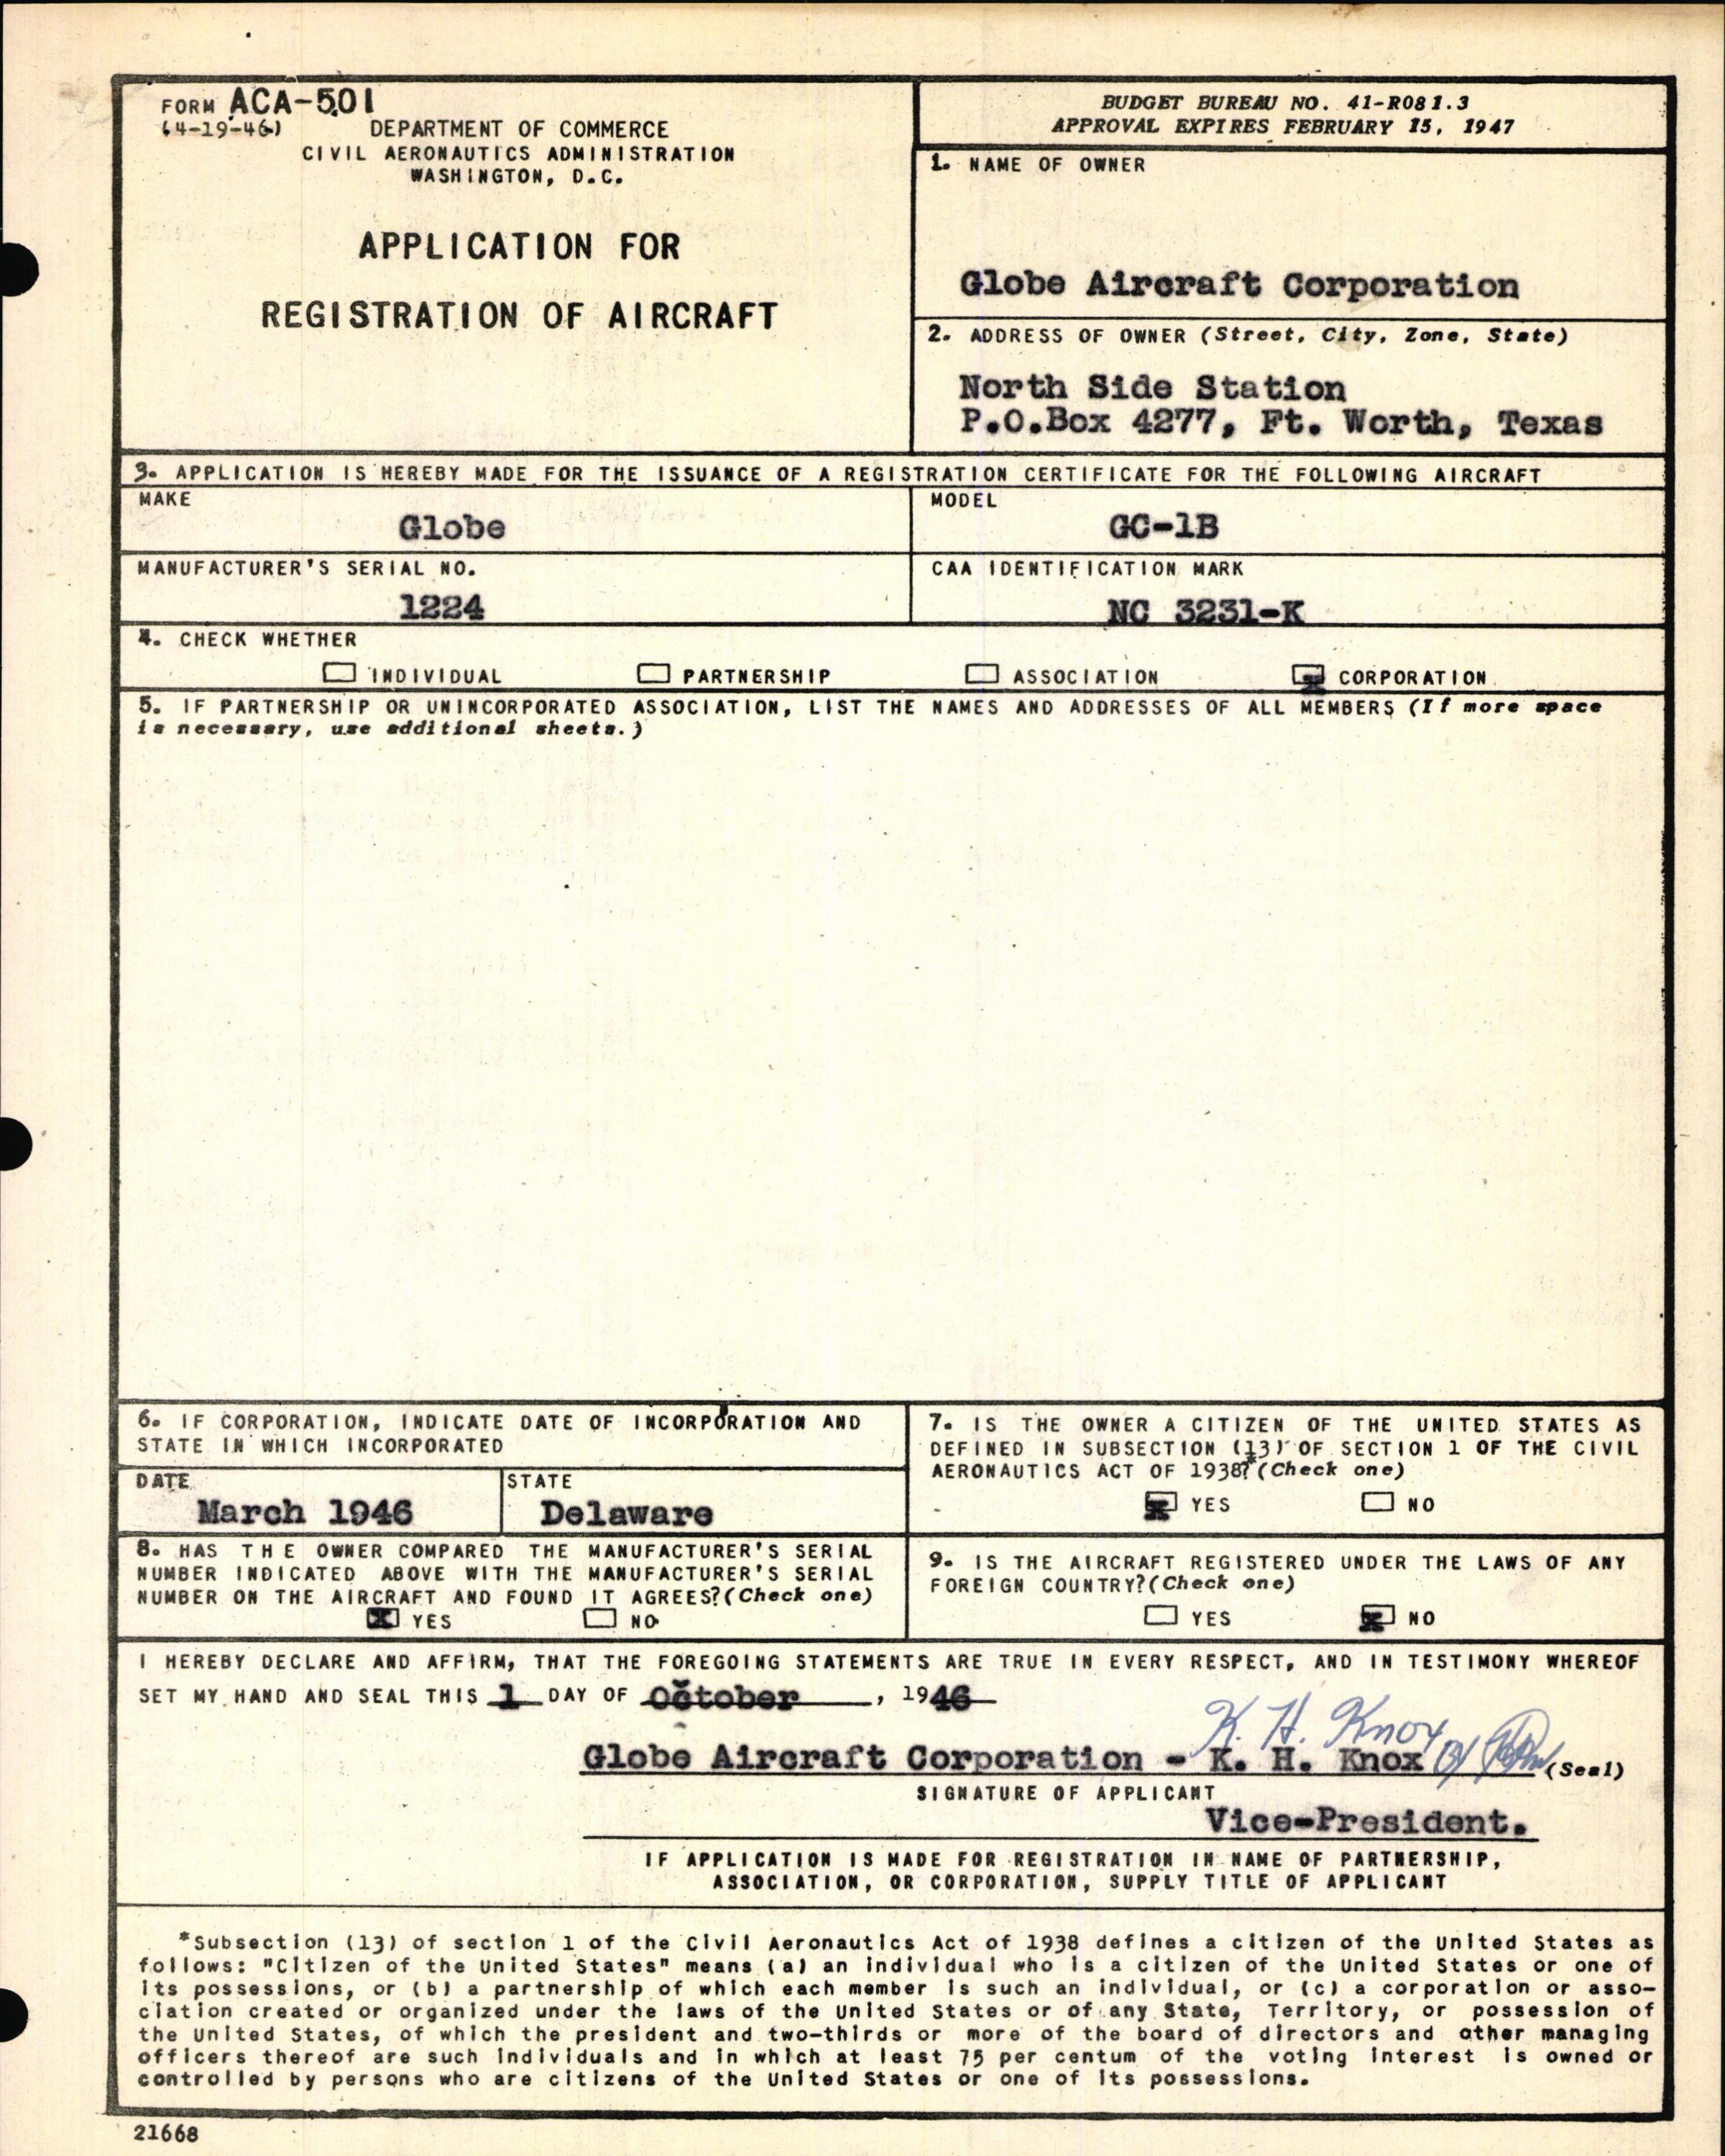 FORM ACA-501
(4-19-46)
DEPARTMENT OF COMMERCE
CIVIL AERONAUTICS ADMINISTRATION
WASHINGTON, D.C.
APPLICATION FOR
REGISTRATION OF AIRCRAFT
BUDGET BUREAU NO. 41-R081.3
APPROVAL EXPIRES FEBRUARY 15, 1947
1. NAME OF OWNER
Globe Aircraft Corporation
2. ADDRESS OF OWNER (Street, City, Zone, State)
North Side Station
P.O.Box 4277, Ft. Worth, Texas
3. APPLICATION IS HEREBY MADE FOR THE ISSUANCE OF A REGISTRATION CERTIFICATE FOR THE FOLLOWING AIRCRAFT
MAKE
Globe
MODEL
GC-1B
MANUFACTURER'S SERIAL NO.
1224
CAA IDENTIFICATION MARK
NC 3231-K
4. CHECK WHETHER
INDIVIDUAL PARTNERSHIP ASSOCIATION x CORPORATION
5. IF PARTNERSHIP OR UNINCORPORATED ASSOCIATION, LIST THE NAMES AND ADDRESSES OF ALL MEMBERS (If more space
is necessary, use additional sheets.)
6. IF CORPORATION, INDICATE DATE OF INCORPORATION AND
STATE IN WHICH INCORPORATED
DATE
March 1946
STATE
Delaware
7. IS THE OWNER A CITIZEN OF THE UNITED STATES AS
DEFINED IN SUBSECTION (13) OF SECTION 1 OF THE CIVIL
AERONAUTICS ACT OF 1938?* (Check one)
x YES NO
8. HAS THE OWNER COMPARED THE MANUFACTURER'S SERIAL
NUMBER INDICATED ABOVE WITH THE MANUFACTURER'S SERIAL
NUMBER ON THE AIRCRAFT AND FOUND IT AGREES? (Check one)
x YES NO
9. IS THE AIRCRAFT REGISTERED UNDER THE LAWS OF ANY
FOREIGN COUNTRY? (Check one)
YES x NO
I HEREBY DECLARE AND AFFIRM, THAT THE FOREGOING STATEMENTS ARE TRUE IN EVERY RESPECT, AND IN TESTIMONY WHEREOF
SET MY HAND AND SEAL THIS 1 DAY OF October, 1946
K. H. Knox
Globe Aircraft Corporation - K. H. Knox (Seal)
SIGNATURE OF APPLICANT
Vice-President.
IF APPLICATION IS MADE FOR REGISTRATION IN NAME OF PARTNERSHIP,
ASSOCIATION, OR CORPORATION, SUPPLY TITLE OF APPLICANT
*Subsection (13) of section 1 of the Civil Aeronautics Act of 1938 defines a citizen of the United States as
follows: "Citizen of the United States" means (a) an individual who is a citizen of the United States or one of
its possessions, or (b) a partnership of which each member is such an individual, or (c) a corporation or asso-
ciation created or organized under the laws of the United States or of any State, Territory, or possession of
the United States, of which the president and two-thirds or more of the board of directors and other managing
officers thereof are such individuals and in which at least 75 per centum of the voting interest is owned or
controlled by persons who are citizens of the United States or one of its possessions.
21668